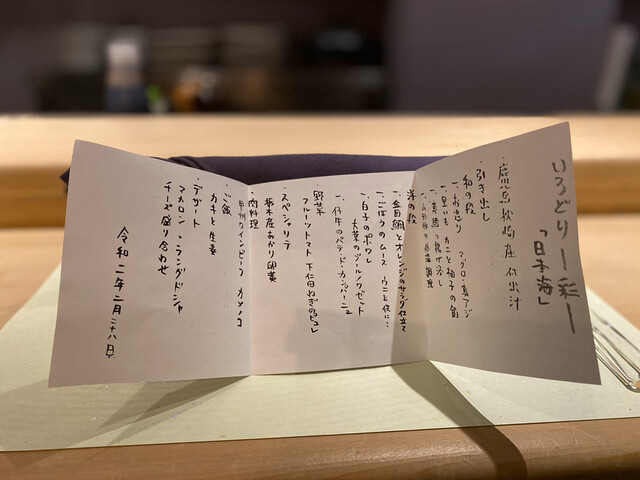 いろどり ー彩ー
「日本海」
・鹿児島枕崎産 一皿出汁
・引き出し
和の段
一、お造り マグロ・真アジ
一、里いも カニと柚子の餡
一、真鱈の揚げ浸し
洋の段
一、金目鯛とオレンジのサラダ仕立て
一、ごぼうのムース ウニと伴に…
一、白子のポワレ
大葉のジュールノワゼット
一、仔牛のパテ・ド・カンパーニュ
・野菜
フルーツトマト 下仁田ねぎのピュレ
・スペシャリテ
栃木産あかり卵黄
・肉料理
甲州ワインビーフ カイノコ
・ご飯
カキと生姜
・デザート
マカロン・ラングドシャ
チーズ盛り合わせ
令和二年二月二十八日